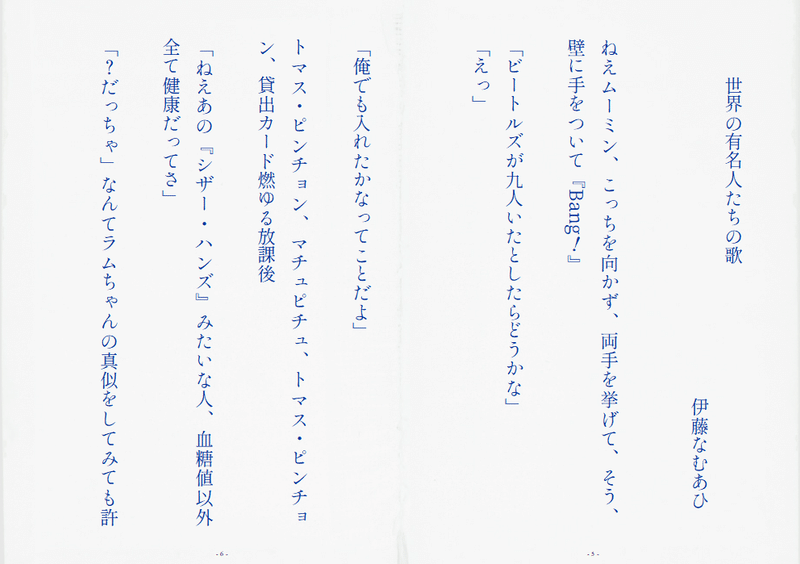 世界の有名人たちの歌
伊藤なむあひ
ねえムーミン、こっちを向かず、両手を挙げて、そう、
壁に手をついて『Bang!』
「ビートルズが九人いたとしたらどうかな」
「えっ」
- 5 -
「俺でも入れたかなってことだよ」
トマス・ピンチョン、マチュピチュ、トマス・ピンチョ
ン、貸出カード燃ゆる放課後
「ねえあの『シザー・ハンズ』みたいな人、血糖値以外
全て健康だってさ」
「？だっちゃ」なんてラムちゃんの真似をしてみても許
- 6 -